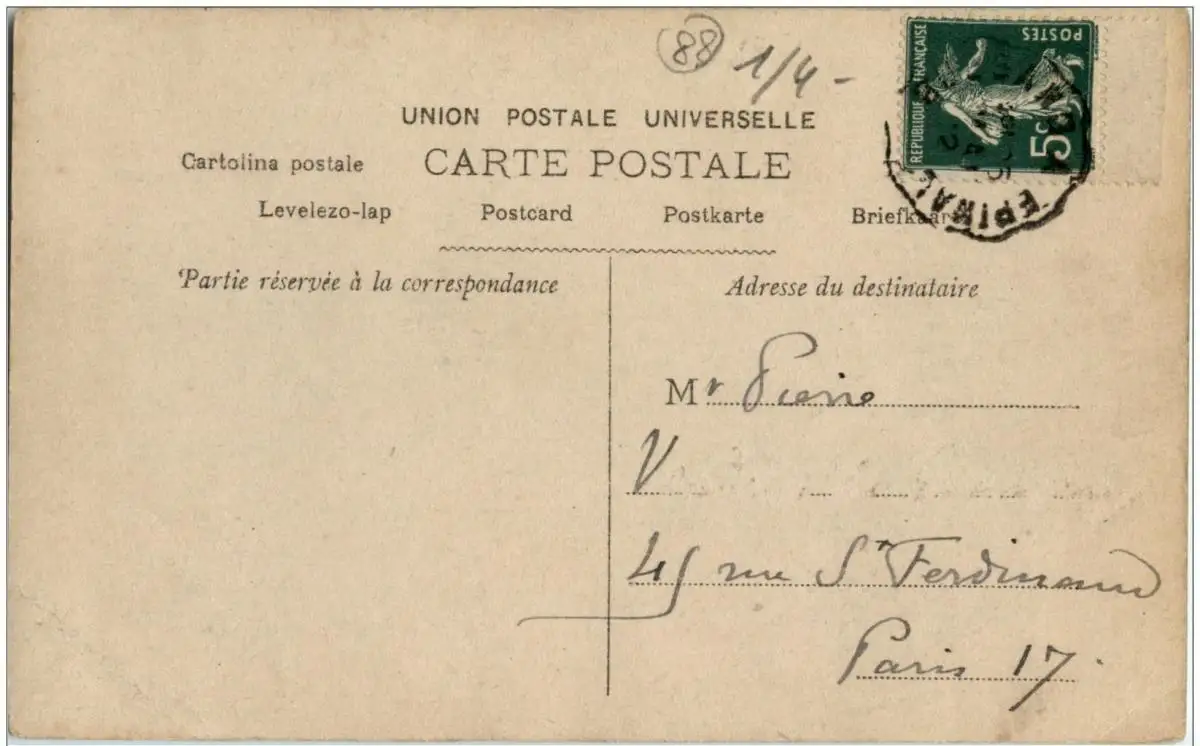 88 1/4 -
POSTES
RÉPUBLIQUE FRANÇAISE
5c
EPINAL
UNION POSTALE UNIVERSELLE
Cartolina postale CARTE POSTALE
Levelezo-lap Postcard Postkarte Briefkaar
Partie réservée à la correspondance
Adresse du destinataire
Mr Pierre
V
45 rue St Ferdinand
Paris 17.